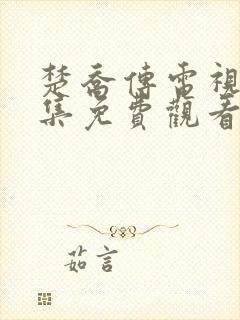 楚喬傳電視
集免費觀看
茹言